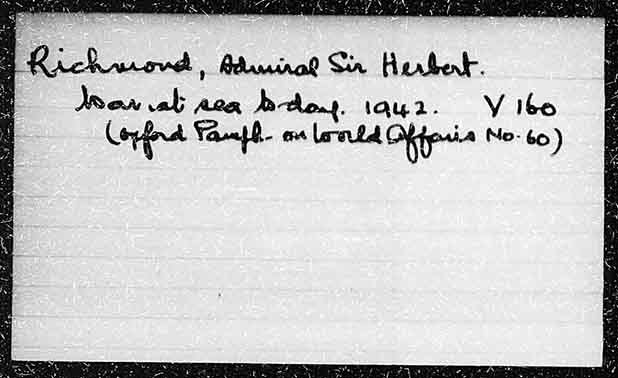 Richmond, Admiral Sir Herbert.
War at sea to-day. 1942. V 160
(Oxford Pamph. on World Affairs No. 60)